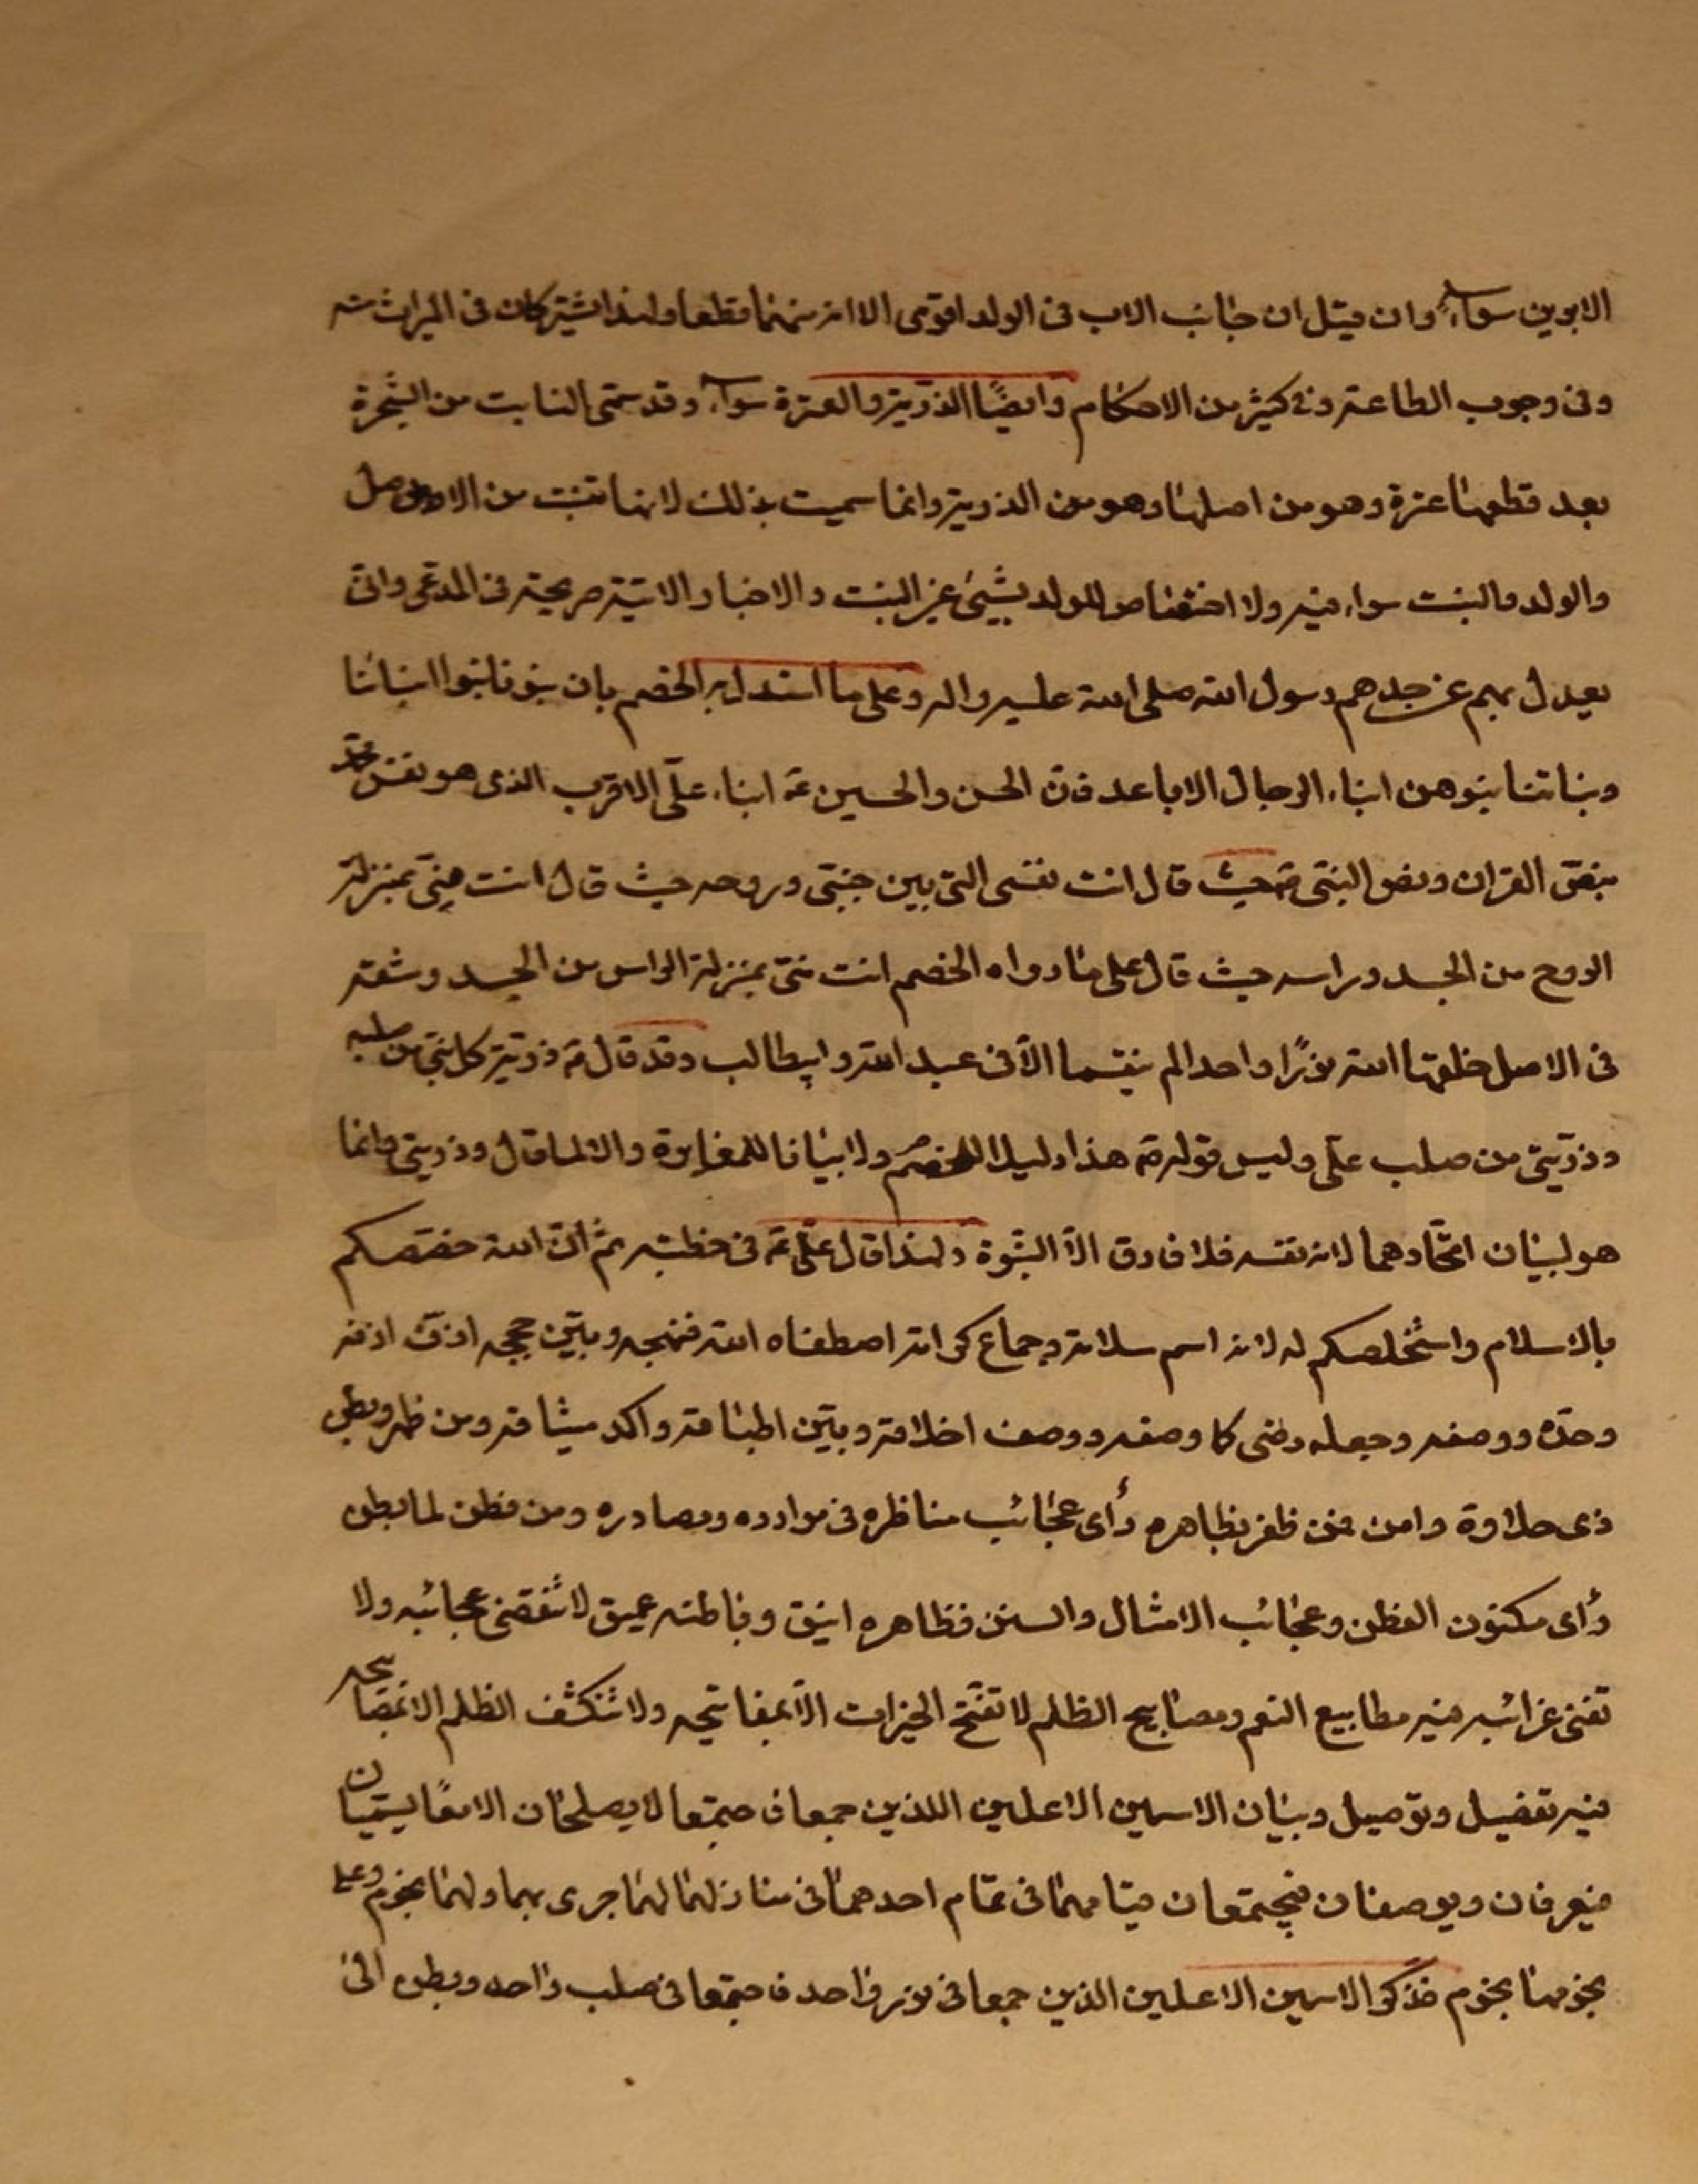 الابوين سواء وان قيل ان جانب الاب فى الولد اقوى الا انه منهما قطعا ولهذا يشتركان فى الميراث منه
وفى وجوب الطاعة وفى كثير من الاحكام وايضًا الذرية والعترة سواء وقد سمّى النابت من الشجرة
بعد قطعها عترة وهو من اصلها وهو من الذرية وانما سميت بذلك لانها تنبت من الاصل
والولد والبنت سواء فيه ولا اختصاص للولد بشيئ غير البنت والاخبار الاتية صريحة فى المدعى وانى
يعدل بهم عن جدهم رسول الله صلى الله عليه واله وعلى ما استدل به الخصم بان بنونا بنوا ابنائنا
وبناتنا بنوهن ابناء الرجال الاباعد فان الحسن والحسين عۤ ابناء علىّ الاقرب الذى هو نفس محمد
بنصّ القران ونص النبى صۤ حيث قال انت نفسى التى بين جنبىّ وروحه حيث قال انت منّى بمنزلة
الروح من الجسد وراسه حيث قال على ما رواه الخصم انت منى بمنزلة الراس من الجسد وشقه
فى الاصل خلقهما الله نورًا واحدا لم ينقسما الّا فى عبد الله وابيطالب وقد قال صۤ ذرية كل نبى من صلبه
وذريّتى من صلب علىّ وليس قوله صۤ هذا دليلا للخصم ولا بيانا للمغايرة والا لما قال وذريتى وانما
هو لبيان اتحادهما لانه نفسه فلا فارق الّا النبّوة ولهذا قال علىّ عۤ فى خطبته ثم انّ الله خصّصكم
بالاسلام واستخلصكم له لانه اسم سلامة وجماع كرامة اصطفاه الله فنهجه وبيّن حججه ارّف ارفه
وحدّه ووصفه وجعله رضى كما وصفه ووصف اخلاقه وبيّن اطباقه واكد ميثاقه ومن ظهر وبطن
ذى حلاوة وامن فمن ظفر بظاهره رأى عجائب مناظره فى موارده ومصادره ومن فطن لما بطن
رأى مكنون الفطن وعجائب الامثال والسنن فظاهره انيق وباطنه عميق لا تنقضى عجائبه ولا
تفنى غرائبه فيه مطابيع النعم ومصابيح الظلم لا تفتح الخيرات الّا بمفاتيحه ولا تنكشف الظلم الا بمصابيحه
فيه تفضيل وتوصيل وبيان الاسمين الاعلين اللذين جمعا فاجتمعا لا يصلحان الا معًا يسمّيان
فيعرفان ويوصفان فيجتمعان قيامهما فى تمام احدهما فى منازلهما لهما جرى بهما ولهما نجوم وعلى
نجومهما نجوم فذكر الاسمين الاعلين الذين جمعا فى نور واحد فاجتمعا فى صلب واحد وبطن الى